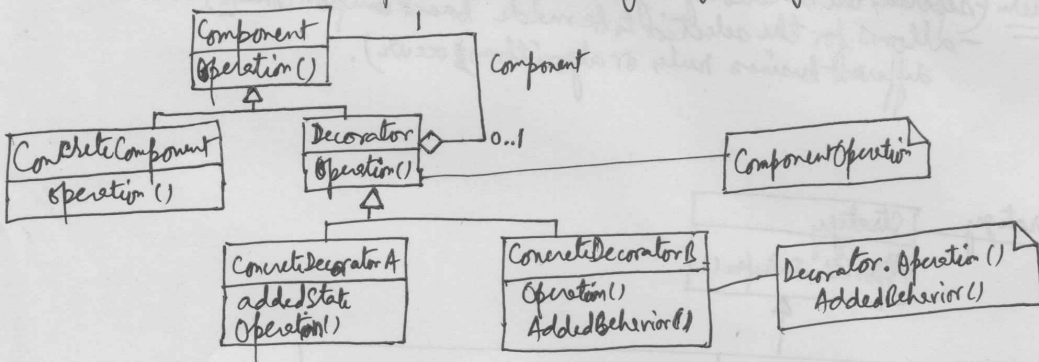 Component
Operation()
1
Component
0..1
ConcreteComponent
operation()
Decorator
Operation()
ComponentOperation
ConcreteDecoratorA
addedState
Operation()
ConcreteDecoratorB
Operation()
AddedBehavior()
Decorator.Operation()
AddedBehavior()